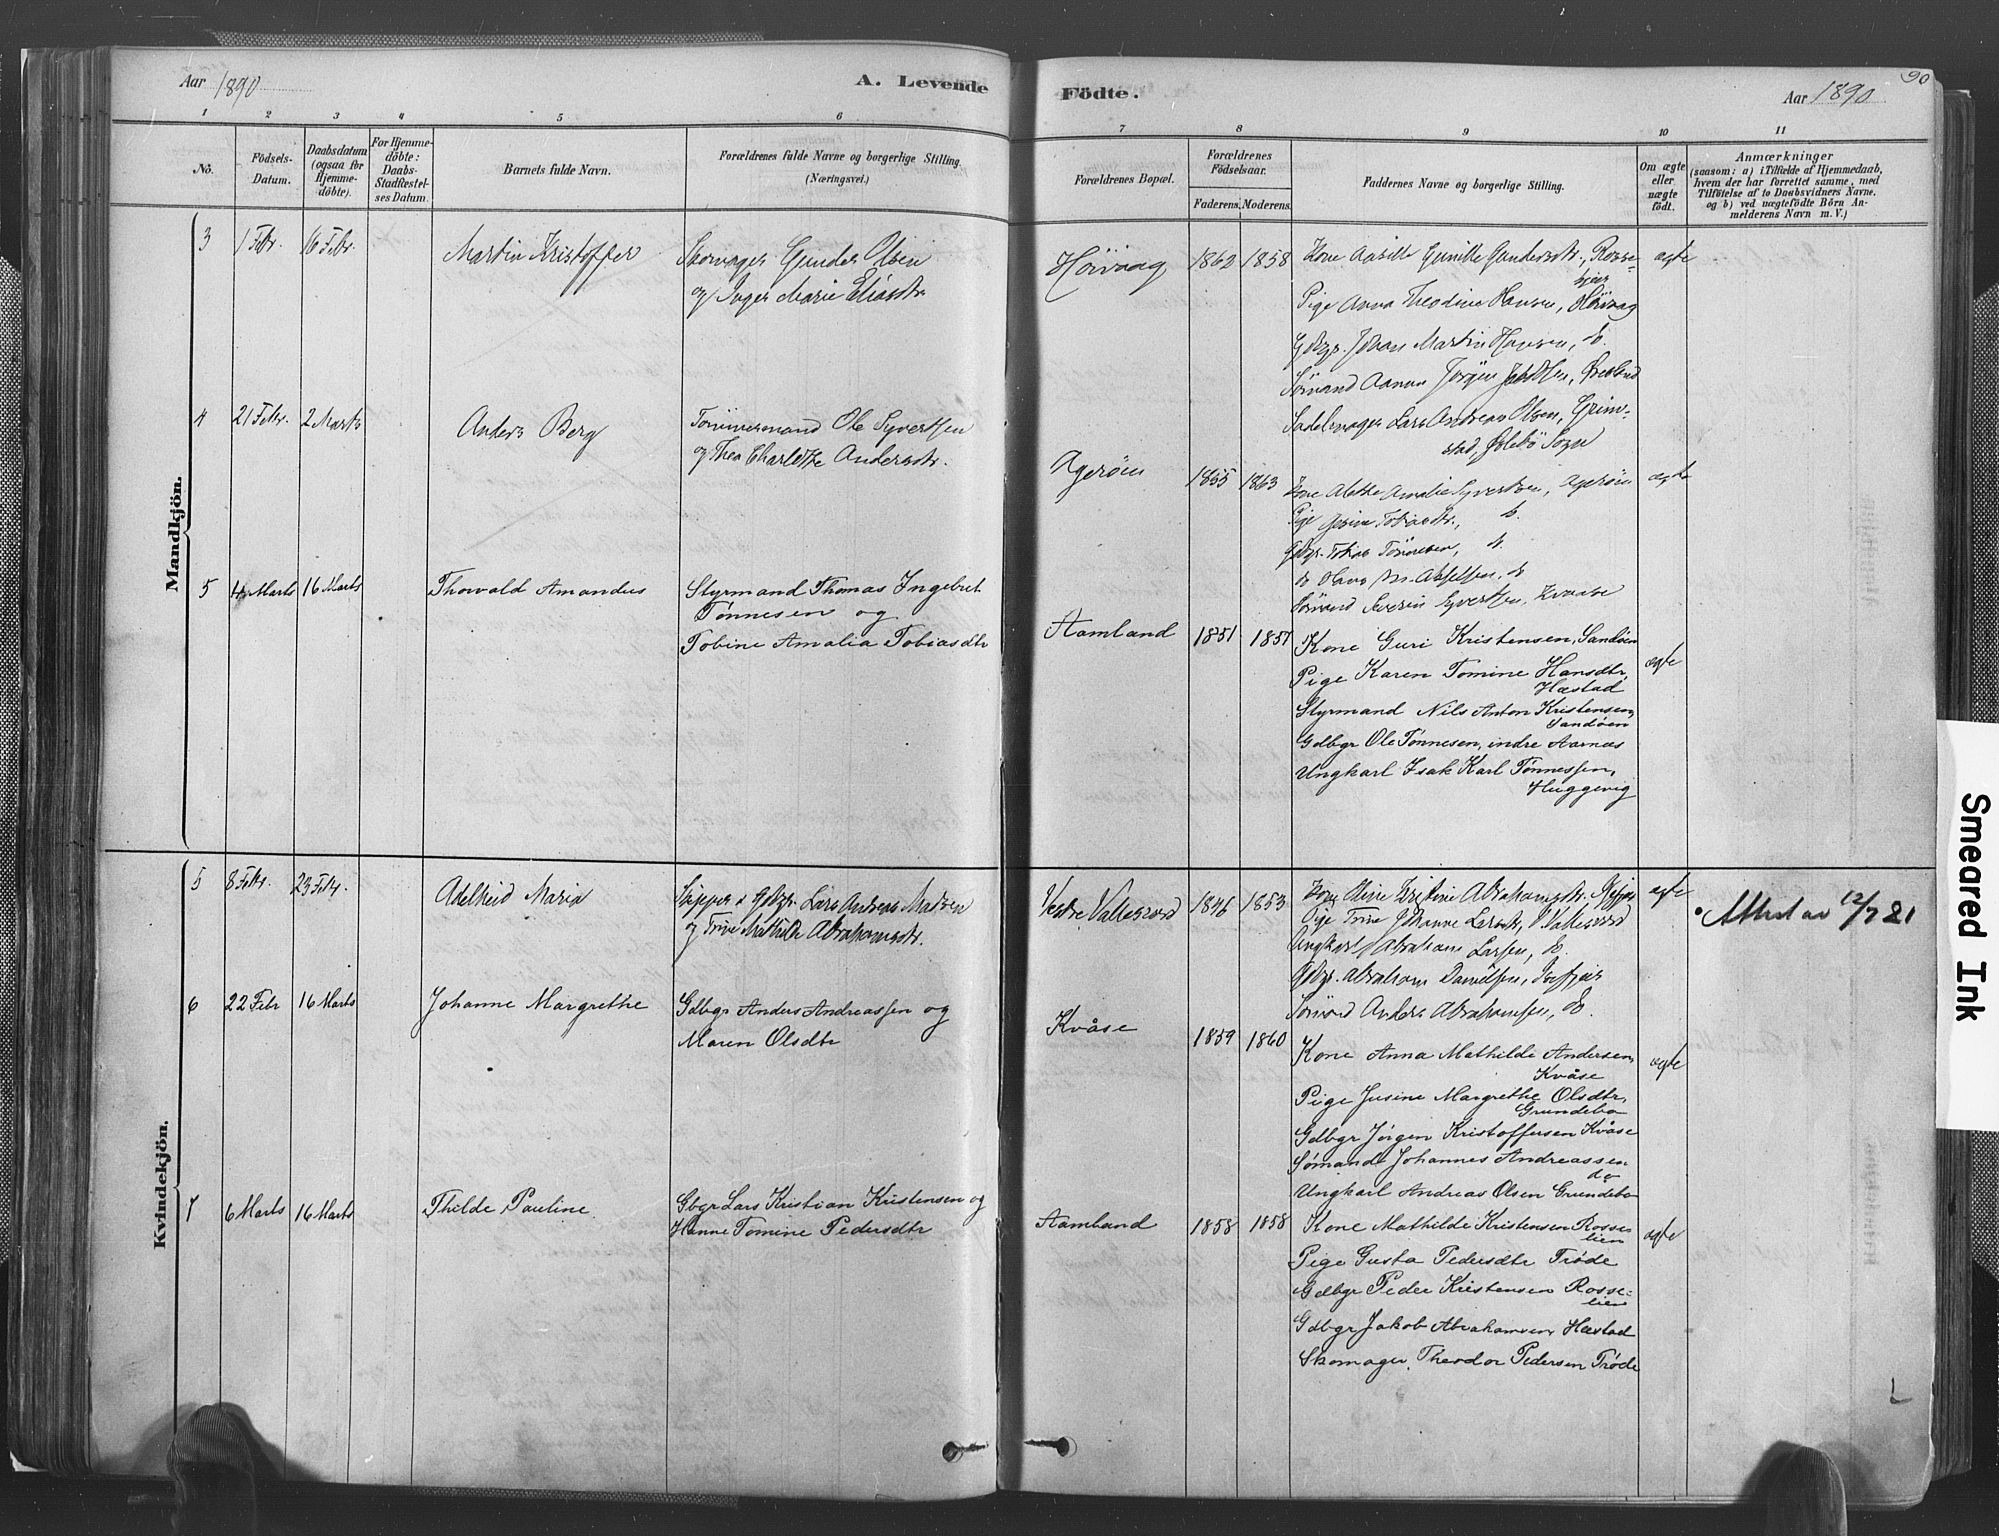 Aar 1890
A. Levende
Födte.
Aar 1890
90
1 2 3 4 5 6 7 8 9 10 11
No.
Födsels-
Datum.
Daabsdatum
(ogsaa for
Hjemme-
döbte).
For Hjemme-
döbte:
Daabs-
Stadfæstel-
ses Datum.
Barnets fulde Navn.
Forældrenes fulde Navne og borgerlige Stilling.
(Næringsvei.)
Forældrenes Bopæl.
Forældrenes
Födselsaar.
Faderens. Moderens.
Faddernes Navne og borgerlige Stilling.
Om ægte
eller
uægte
födt.
Anmærkninger
(saasom: a) i Tilfælde af Hjemmedaab,
hvem der har forrettet samme, med
Tilföielse af to Daabsvidners Navne.
og b) ved uægtefödte Börn An-
melderens Navn m. V.)
Mandkjön.
3 1 Febr. 16 Febr. Martin Kristoffer
Gunder Olsen
og Inger Marie Eliasdtr
Höivaag 1862 1858
Kone Aasille Gunille Gundersdtr., Rosse-
Pige Anna Theodine Hansen, Höivaag
Gdbgr. Johan Martin Hansen, do.
Sömand Aanon Jörgen
Lars Andreas Olsen, Grim-
stad, Sogn
ægte
4 21 Febr. 2 Marts Anders Berg
Tömmermand Ole Syvertsen
og Thea Charlotte Andersdtr.
Ageröen 1855 1863
Kone Alethe Amalie Syvertsen, Ageröen
Pige Tobiasdtr., do.
Gdbgr. Tobias Tönnesen, do.
do Olaus M. Akselsen, do
Sömand Severin Syvertsen, Kvaase
ægte
5 4 Marts 16 Marts Thorvald Amandus
Styrmand Thomas Ingebret
Tønnesen og
Tobine Amalia Tobiasdtr
Aamland 1851 1857
Kone Guri Kristensen, Sandøen
Pige Karen Tomine Hansdtr,
Hæstad
Styrmand Nils Anton Kristensen,
Sandøen
Gdbgr Ole Tønnesen, indre Aarnæs
Ungkarl Isak Karl Tønnessen,
Huggevig
ægte
Kvindekjön.
5 8 Febr. 23 Febr. Adelheid Maria
Skipper & Gdbgr. Lars Andreas Madsen
og Trine Mathilde Abrahamsdtr.
Vestre Vallesværd 1846 1853
Kone Kristine Abrahamsdtr.
Pige Trine Johanne Larsdtr, V Vallesværd
Ungkarl Abraham Larsen, do.
Gdbgr. Abraham Danielsen,
Sömand Anders Abrahamsen, do.
ægte
Attest av 12/7 21
6 22 Febr 16 Marts Johanne Margrethe
Gdbgr Anders Andreassen og
Maren Olsdtr
Kvåse 1859 1860
Kone Anna Mathilde Andersen,
Kvåse
Pige Jusine Margrethe Olsdtr,
Grundebo
Gdbgr Jørgen Kristoffersen Kvåse
Sømand Johannes Andreassen
do
Ungkarl Andreas Olsen Grundebo
ægte
7 6 Marts 16 Marts Thilde Pauline
Gbgr Lars Kristian Kristensen og
Hanne Tomine Pedersdtr
Aamland 1858 1858
Kone Mathilde Kristensen Rosse-
lien
Pige Gusta Pedersdtr Trøde
Gdbgr Peder Kristensen Rosse-
lien
Gdbgr Jakob Abrahamsen Hæstad
Skomager. Theodor Pedersen Trøde
ægte
Smeared Ink